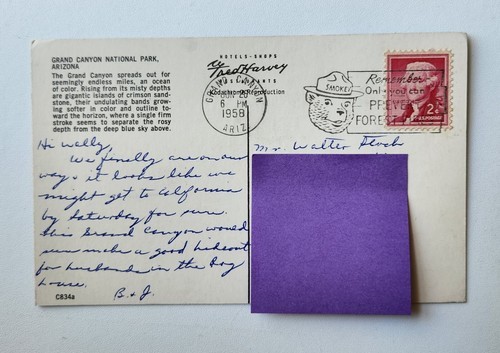 GRAND CANYON NATIONAL PARK,
ARIZONA
The Grand Canyon spreads out for
seemingly endless miles, an ocean
of color. Rising from its misty depths
are gigantic islands of crimson sand-
stone, their undulating bands grow-
ing softer in color and outline to-
ward the horizon, where a single firm
stroke seems to separate the rosy
depth from the deep blue sky above.
HOTELS-SHOPS
Fred Harvey
RESTAURANTS
Kodachrome Reproduction
GRAND CANYON
JUN 26
6 PM
1958
ARIZ.
SMOKEY
Remember
Only you can
PREVENT
FOREST
2¢
U.S. POSTAGE
Hi Wally,
We finally are on our
way & it looks like we
might get to California
by Saturday for sure.
This Grand Canyon would
sure make a good hideout
for husbands in the Dog
house.
B. & J.
Mr. Walter
C834a